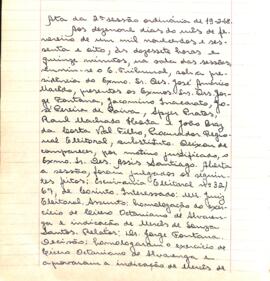 Ata da 2ª sessão ordinária de 19-2-68.
Aos dezenove dias do mês de fe-
vereiro de um mil novecentos e ses-
senta e oito, às dezessete horas e
quinze minutos, na sala das sessões,
reuniu-se o E. Tribunal, sob a pre-
sidência do Exmo. Sr. Des.
presentes os Exmos. Srs. Drs. Jor-
ge Fontana,
Pereira de Paiva,
Raul Machado Horta e João Braz
da Costa Val Filho, Procurador Regio-
nal Eleitoral, substituto. Deixou de
comparecer, por motivo justificado, o
Exmo. Sr. Des. Assis Santiago. Aberta
a sessão, foram julgados os seguin-
tes feitos: Escrivania Eleitoral nº 32/
67, de Corinto. Interessado: MM. Juiz
Eleitoral. Assunto: homologação de exer-
cício de Cícero Octaviano de Alvaren-
ga e indicação de de Souza
Santos. Relator: Dr. Jorge Fontana.
Decisão: homologaram o exercício de
Cícero Octaviano de Alvarenga e
aprovaram a indicação de